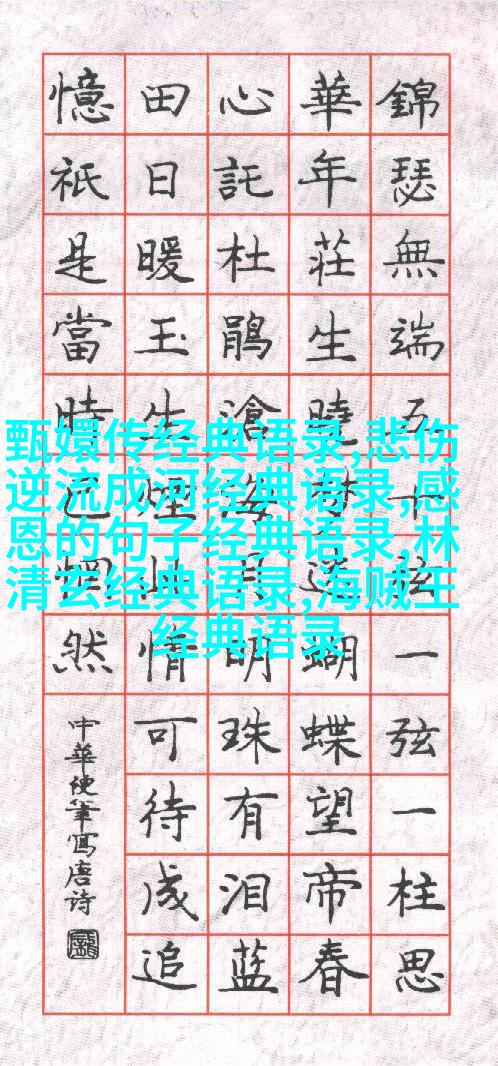 錦瑟無端五十弦一弦一柱思
華年莊生曉夢迷蝴蝶望帝春
心託杜鵑滄海月明珠有泪蓝
田日暖玉生煙此情可待成追
憶祇是當時已惘然
中華硬筆寫唐诗
甄嬛传经典语录,悲伤
逆流成河经典语录,感
恩的句子经典语录,林
清玄经典语录,海贼王
经典语录